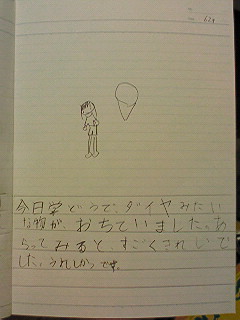 今日学どうで、ダイヤみたい
な物が、おちていました。あ
らってみると、すごくきれいで
した。うれしかつです。